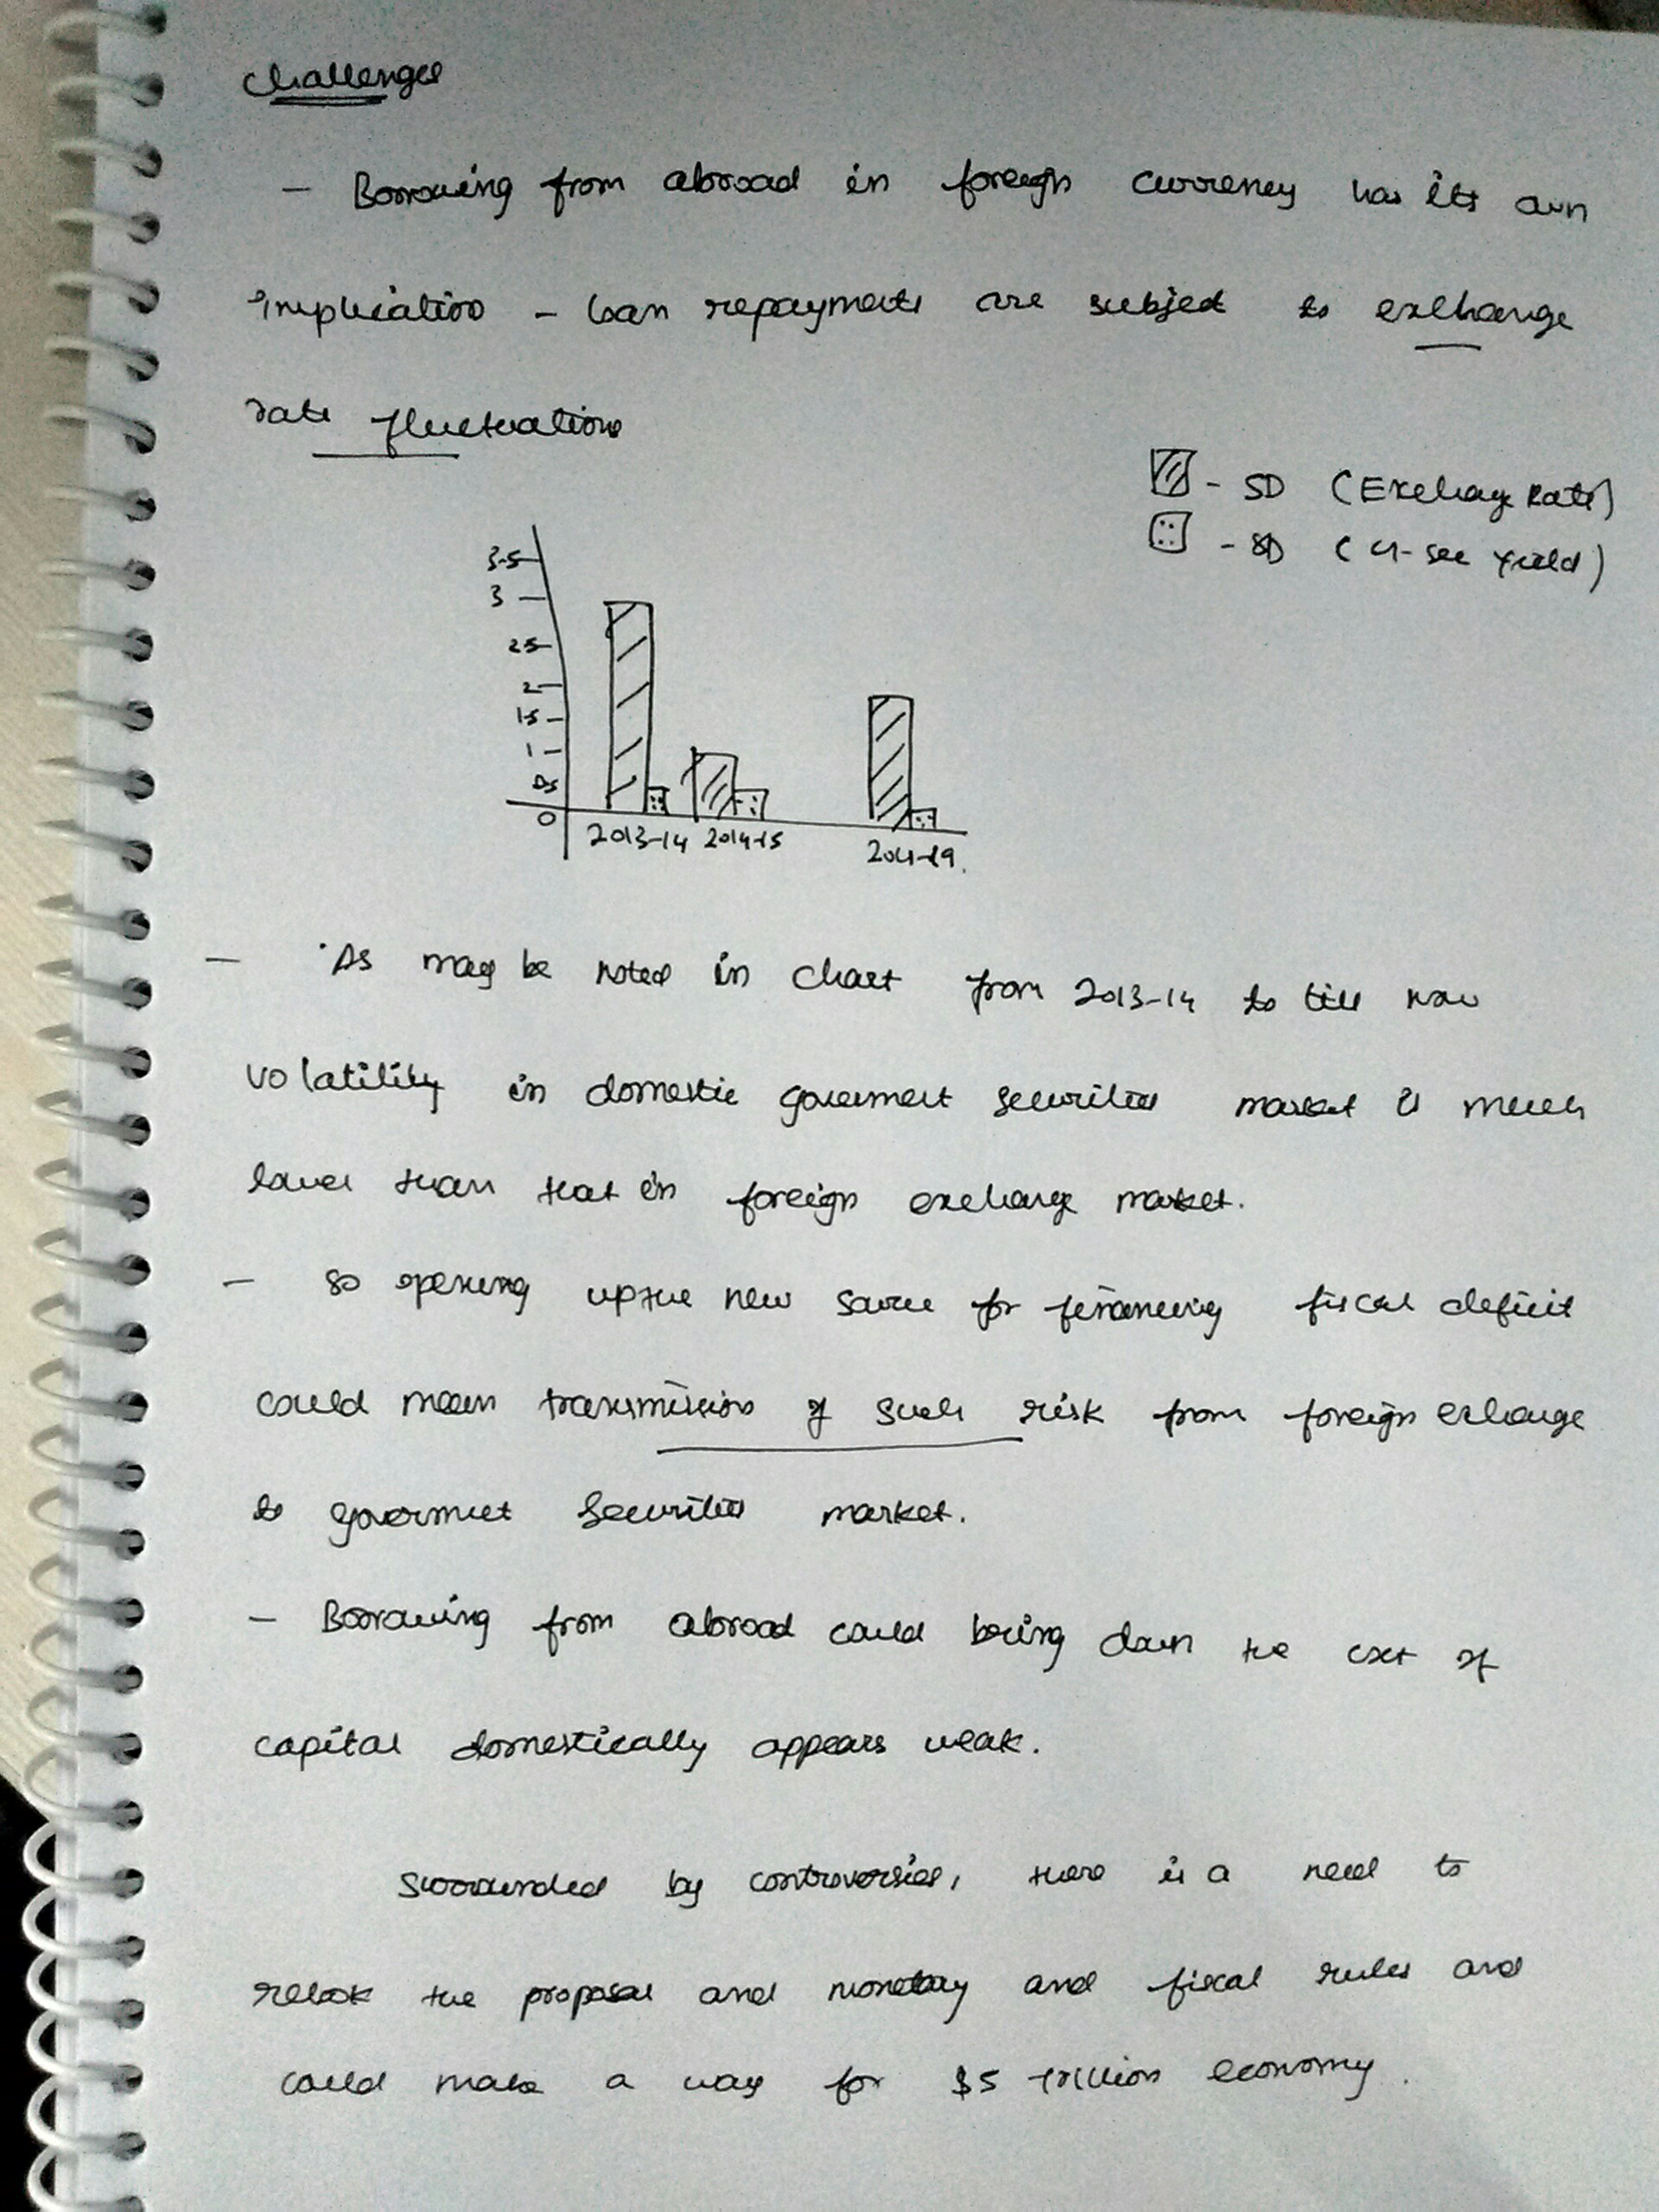 Challenges
- Borrowing from abroad in foreign currency has its own
implication - loan repayments are subject to exchange
rate fluctuations
- SD (Exchange Rate)
- SD (G-sec Yield)
3.5
3
2.5
2
1.5
1
0.5
0
2013-14 2014-15
- As may be noted in chart from 2013-14 to till now
volatility in domestic government securities market is much
lower than that in foreign exchange market.
- So opening up the new source for financing fiscal deficit
could mean transmission of such risk from foreign exchange
to government securities market.
- Borrowing from abroad could bring down the cost of
capital domestically appears weak.
Surrounded by controversies, there is a need to
relook the proposal and monetary and fiscal rules and
could make a way for $5 trillion economy.